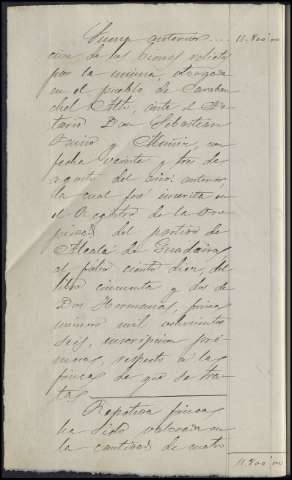 11.800'00
cion de los bienes relictos
por la misma, otorgada
en el pueblo de Caraban
chel Alto, ante el No-
tario Don Sebastian
y con
fecha veinte y tres de
agosto del anterior,
la cual fué inscrita en
el Registro de la Pro
piedad del partido de
Alcalá de Guadaira
al folio ciento diez, del
libro cincuenta y dos de
Dos Hermanas, finca
número mil ochocientos
seis, inscripcion pri-
mera, respecto á la
finca de que se tra-
ta.
Repetida finca
ha sido valorada en
la cantidad de cuatro
11.800'00